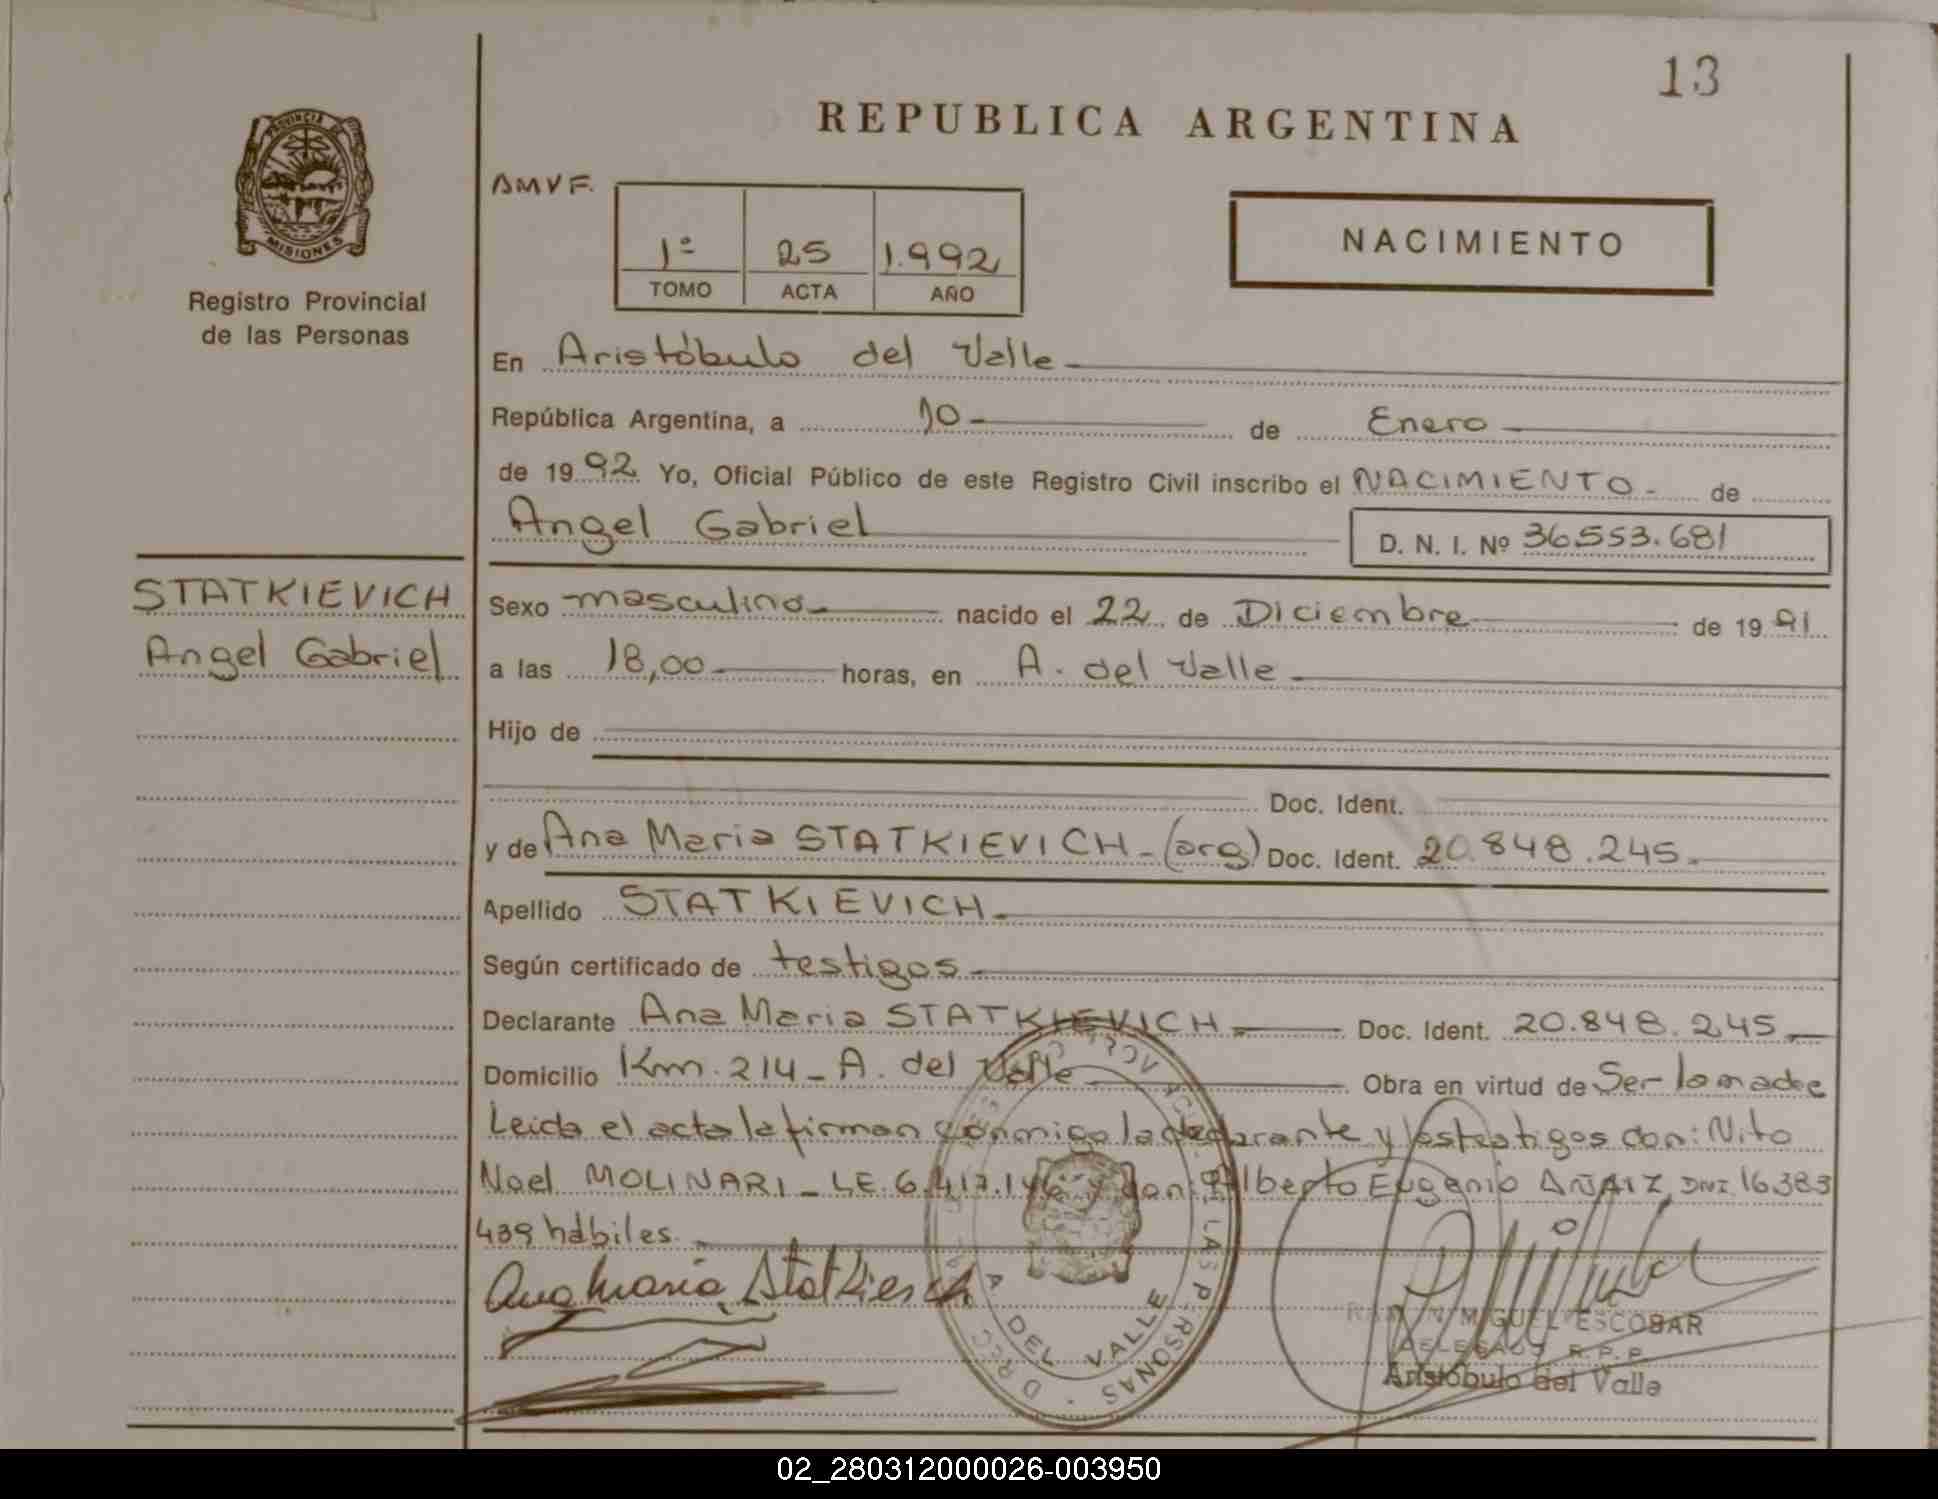 13
REPUBLICA ARGENTINA
PROVINCIA DE
MISIONES
Registro Provincial
de las Personas
AMVF.
1º 25 1.992
TOMO ACTA AÑO
NACIMIENTO
En Aristóbulo del Valle
República Argentina, a 10 de Enero
de 1992 Yo, Oficial Público de este Registro Civil inscribo el NACIMIENTO de
Angel Gabriel D. N. I. Nº 36553.681
STATKIEVICH
Angel Gabriel
Sexo masculino nacido el 22 de Diciembre de 1991
a las 18,00 horas, en A. del Valle
Hijo de
Doc. Ident.
y de Ana Maria STATKIEVICH-(arg) Doc. Ident. 20.848.245.
Apellido STATKIEVICH
Según certificado de testigos
Declarante Ana Maria STATKIEVICH Doc. Ident. 20.848.245
Domicilio Km. 214- A. del Valle Obra en virtud de Ser la madre
Leida el acta la firman conmigo la declarante y los testigos don: Nito
Noel MOLINARI - LE. 6.417.146 y don: Alberto Eugenio DNI. 16.383
439 hábiles.
Ana Maria Statkievich
A DEL VALLE
DE LAS PERSONAS
MIGUEL ESCOBAR
DELEGADO R.P.P.
Aristóbulo del Valle
02_280312000026-003950